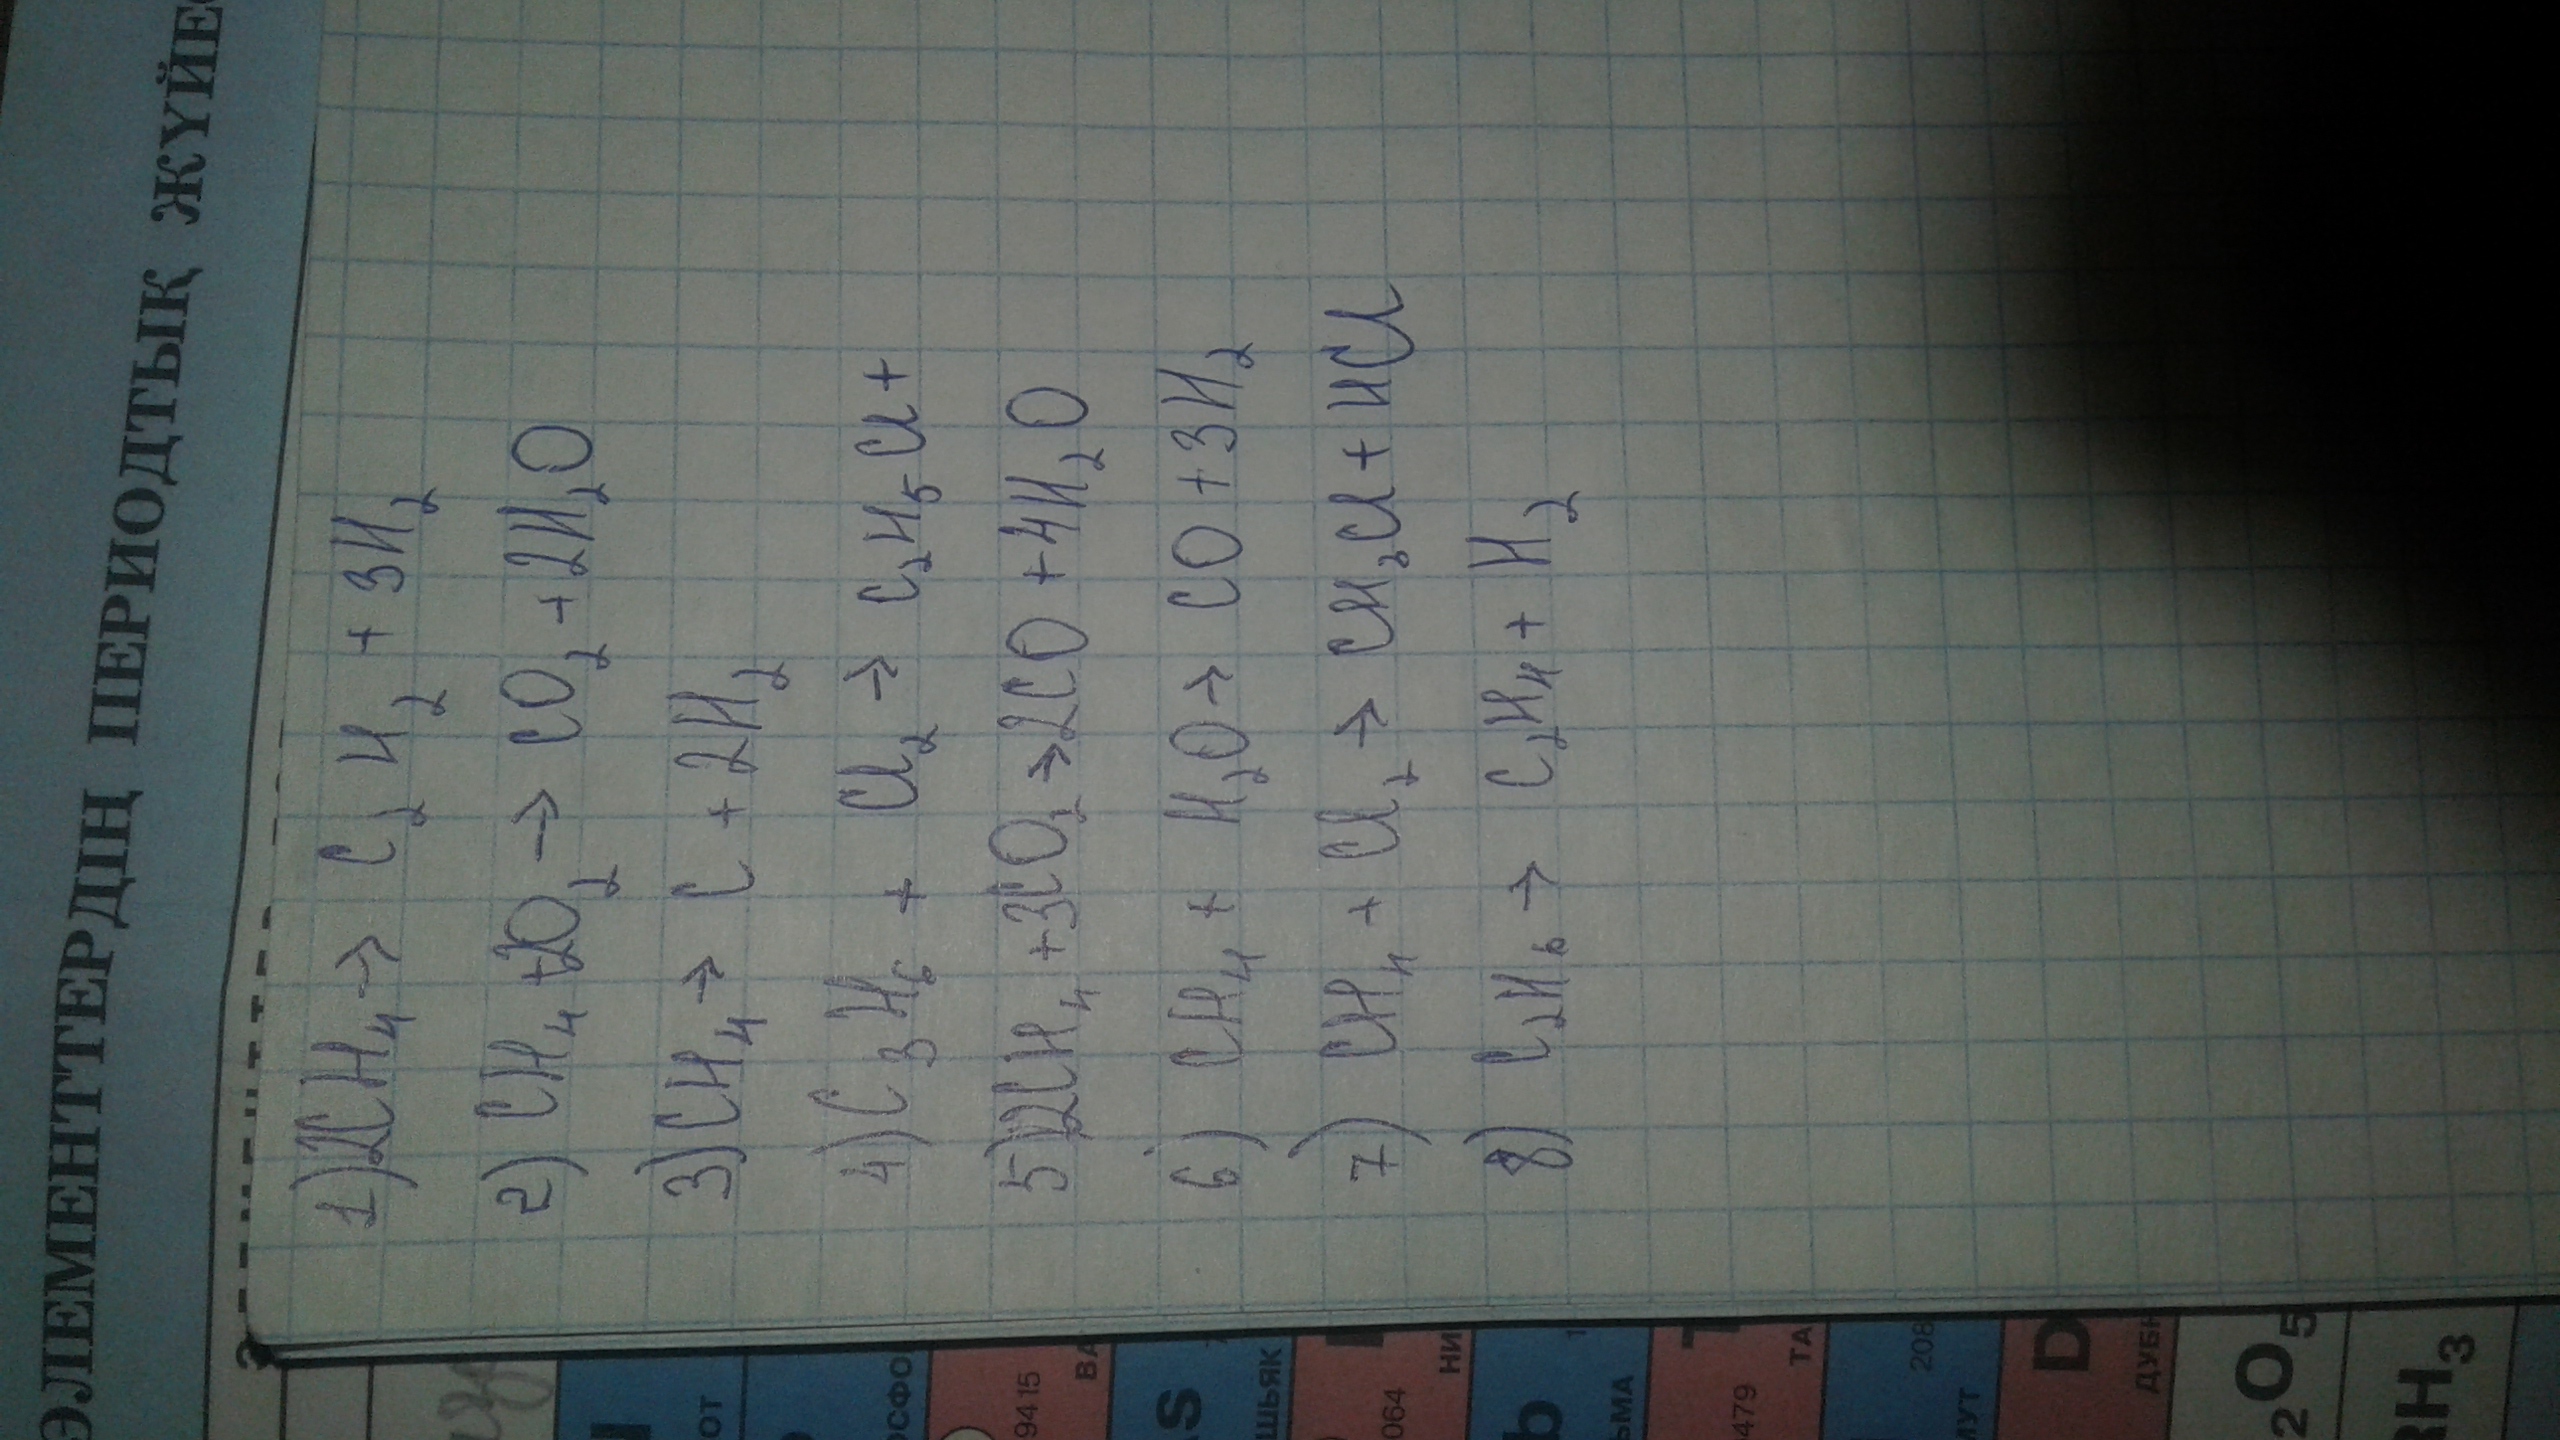 ЭЛЕМЕНТТЕРДІҢ ПЕРИОДТЫК ЖҮЙЕС
1) 2CH₄ → C₂H₂ + 3H₂
2) CH₄ + 2O₂ → CO₂ + 2H₂O
3) CH₄ → C + 2H₂
4) C₃H₆ + Cl₂ → C₂H₅Cl +
5) 2CH₄ + 3O₂ → 2CO + 4H₂O
6) CH₄ + H₂O → CO + 3H₂
7) CH₄ + Cl₂ → CH₃Cl + HCl
8) C₂H₆ → C₂H₄ + H₂
ОТ
ОСФО
9415
ВА
AS
ШЬЯК
064
НИ
b
ЬМА
479
ТА
208
МУТ
D
ДУБН
2O₅
RH₃